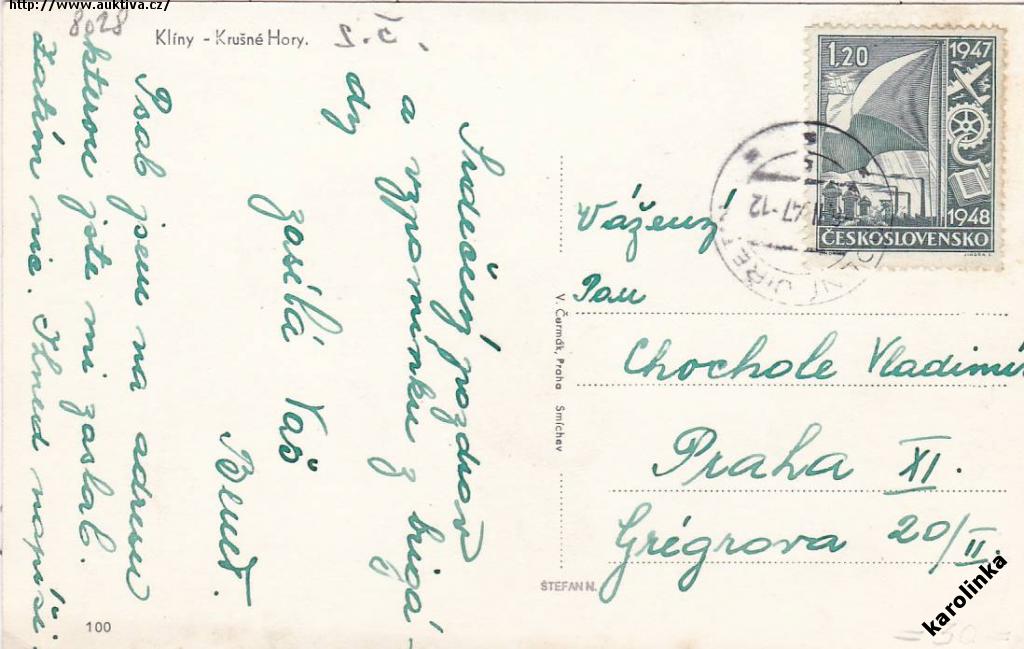 http://www.auktiva.cz/
8028
Klíny - Krušné Hory.
Srdečný pozdrav
a vzpomínku z brigá-
dy
zasílá Váš
Psal jsem na adresu
kterou jste mi zaslal.
Zatím nic. Ihned napíši.
100
V. Čermák, Praha Smíchov
ŠTEFAN N.
1,20
1947
1948
ČESKOSLOVENSKO
47-12
Vážený
Pan
Chochole Vladimír
Praha XI.
Grégrova 20/II.
karolinka